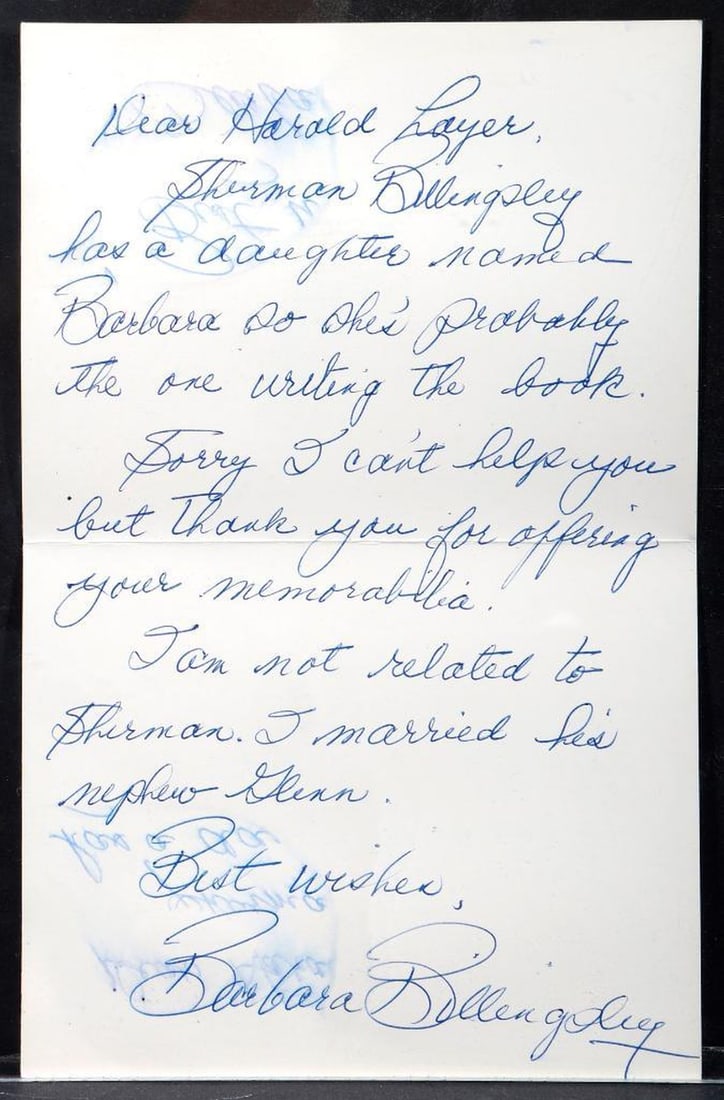 Dear Harold Layer,
Sherman Billingsley
has a daughter named
Barbara so she's probably
the one writing the book.
Sorry I can't help you
but thank you for offering
your memorabilia.
I am not related to
Sherman. I married his
nephew Glenn.
Best wishes,
Barbara Billingsley